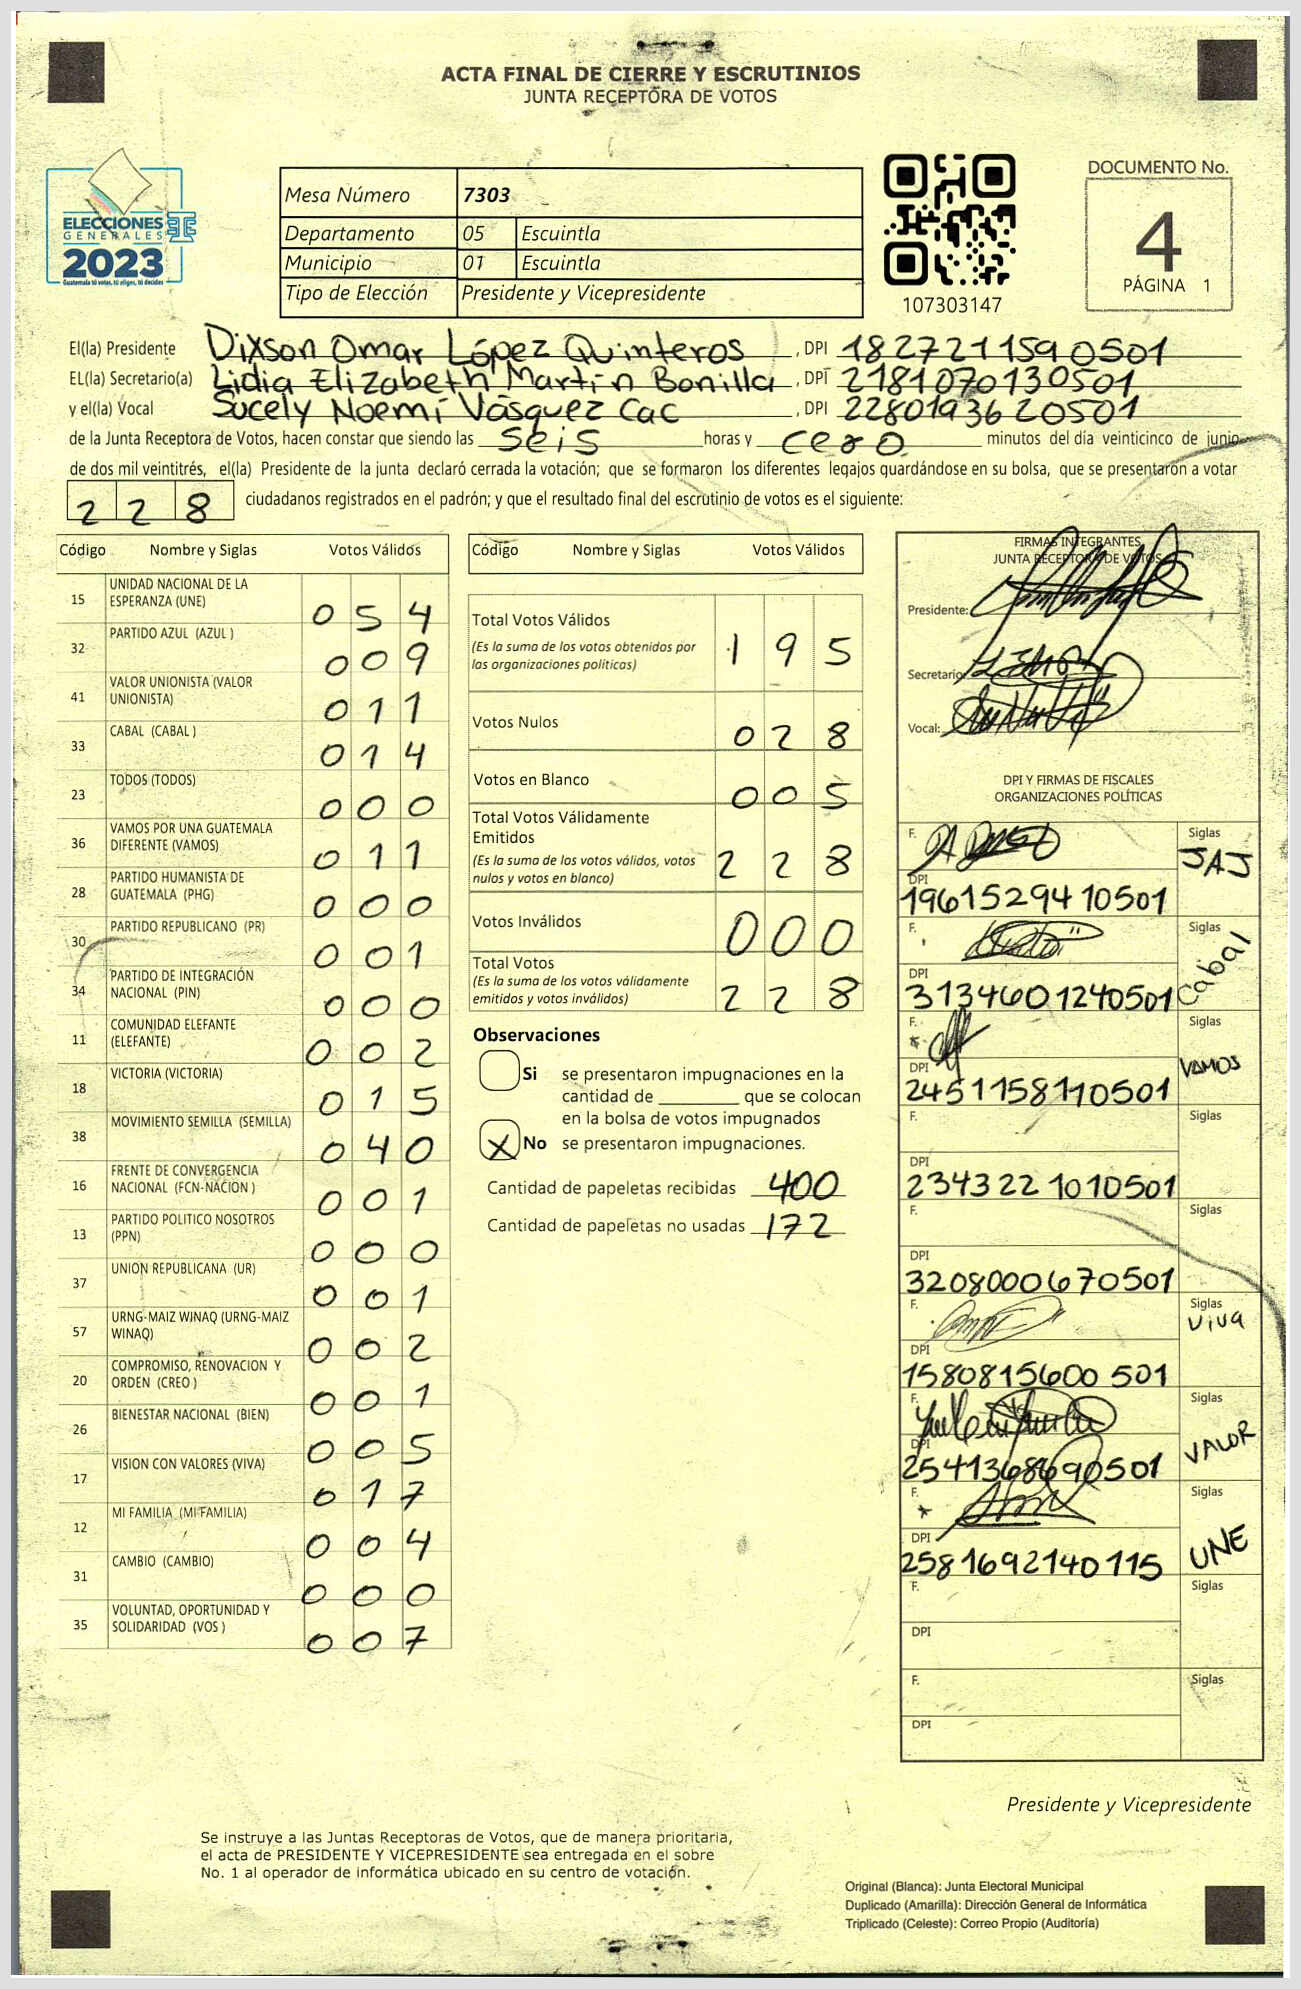 ACTA FINAL DE CIERRE Y ESCRUTINIOS
JUNTA RECEPTORA DE VOTOS
ELECCIONES
GENERALES
2023
Guatemala tú votas, tú eliges, tú decides
Mesa Número 7303
Departamento 05 Escuintla
Municipio 01 Escuintla
Tipo de Elección Presidente y Vicepresidente
107303147
DOCUMENTO No.
4
PÁGINA 1
El(la) Presidente Dixson Omar López Quinteros, DPI 1827211590501
EL(la) Secretario(a) Lidia Elizabeth Martín Bonilla, DPI 2181070130501
y el(la) Vocal Sucely Noemí Vásquez Cac, DPI 2280193620501
de la Junta Receptora de Votos, hacen constar que siendo las seis horas y cero minutos del día veinticinco de junio
de dos mil veintitrés, el(la) Presidente de la junta declaró cerrada la votación; que se formaron los diferentes legajos guardándose en su bolsa, que se presentaron a votar
228 ciudadanos registrados en el padrón; y que el resultado final del escrutinio de votos es el siguiente:
Código Nombre y Siglas Votos Válidos
15 UNIDAD NACIONAL DE LA ESPERANZA (UNE) 054
32 PARTIDO AZUL (AZUL ) 009
41 VALOR UNIONISTA (VALOR UNIONISTA) 011
33 CABAL (CABAL ) 014
23 TODOS (TODOS) 000
36 VAMOS POR UNA GUATEMALA DIFERENTE (VAMOS) 011
28 PARTIDO HUMANISTA DE GUATEMALA (PHG) 000
30 PARTIDO REPUBLICANO (PR) 001
34 PARTIDO DE INTEGRACIÓN NACIONAL (PIN) 000
11 COMUNIDAD ELEFANTE (ELEFANTE) 002
18 VICTORIA (VICTORIA) 015
38 MOVIMIENTO SEMILLA (SEMILLA) 040
16 FRENTE DE CONVERGENCIA NACIONAL (FCN-NACION ) 001
13 PARTIDO POLITICO NOSOTROS (PPN) 000
37 UNION REPUBLICANA (UR) 001
57 URNG-MAIZ WINAQ (URNG-MAIZ WINAQ) 002
20 COMPROMISO, RENOVACION Y ORDEN (CREO ) 001
26 BIENESTAR NACIONAL (BIEN) 005
17 VISION CON VALORES (VIVA) 017
12 MI FAMILIA (MI FAMILIA) 004
31 CAMBIO (CAMBIO) 000
35 VOLUNTAD, OPORTUNIDAD Y SOLIDARIDAD (VOS ) 007
Código Nombre y Siglas Votos Válidos
Total Votos Válidos 195
(Es la suma de los votos obtenidos por
las organizaciones políticas)
Votos Nulos 028
Votos en Blanco 005
Total Votos Válidamente
Emitidos 228
(Es la suma de los votos válidos, votos
nulos y votos en blanco)
Votos Inválidos 000
Total Votos 228
(Es la suma de los votos válidamente
emitidos y votos inválidos)
Observaciones
Si se presentaron impugnaciones en la
cantidad de ________ que se colocan
en la bolsa de votos impugnados
X No se presentaron impugnaciones.
Cantidad de papeletas recibidas 400
Cantidad de papeletas no usadas 172
FIRMAS INTEGRANTES
JUNTA RECEPTORA DE VOTOS
Presidente:
Secretario:
Vocal:
DPI Y FIRMAS DE FISCALES
ORGANIZACIONES POLÍTICAS
F. Siglas JAJ
DPI
1961529410501
F. Siglas Cabal
DPI
3134601240501
F. Siglas VAMOS
DPI
2451158110501
F. Siglas
DPI
2343221010501
F. Siglas
DPI
3208000670501
F. Siglas Viva
DPI
1580815600501
F. Siglas VALOR
DPI
2541368690501
F. Siglas UNE
DPI
2581692140115
F. Siglas
DPI
F. Siglas
DPI
Presidente y Vicepresidente
Se instruye a las Juntas Receptoras de Votos, que de manera prioritaria,
el acta de PRESIDENTE Y VICEPRESIDENTE sea entregada en el sobre
No. 1 al operador de informática ubicado en su centro de votación.
Original (Blanca): Junta Electoral Municipal
Duplicado (Amarilla): Dirección General de Informática
Triplicado (Celeste): Correo Propio (Auditoría)